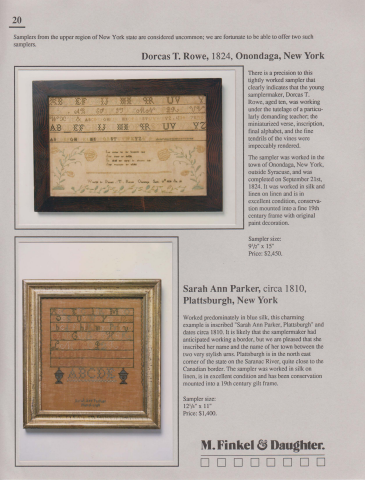 20
Samplers from the upper region of New York state are considered uncommon; we are fortunate to be able to offer two such
samplers.
Dorcas T. Rowe, 1824, Onondaga, New York
There is a precision to this
tightly worked sampler that
clearly indicates that the young
samplermaker, Dorcas T.
Rowe, aged ten, was working
under the tutelage of a particu-
larly demanding teacher; the
miniaturized verse, inscription,
final alphabet, and the fine
tendrils of the vines were
impeccably rendered.
The sampler was worked in the
town of Onondaga, New York,
outside Syracuse, and was
completed on September 21st,
1824. It was worked in silk and
linen on linen and is in
excellent condition, conserva-
tion mounted into a fine 19th
century frame with original
paint decoration.
Sampler size:
9½" x 15"
Price: $2,450.
Sarah Ann Parker, circa 1810,
Plattsburgh, New York
Worked predominately in blue silk, this charming
example is inscribed "Sarah Ann Parker, Plattsburgh" and
dates circa 1810. It is likely that the samplermaker had
anticipated working a border, but we are pleased that she
inscribed her name and the name of her town between the
two very stylish urns. Plattsburgh is in the north east
corner of the state on the Saranac River, quite close to the
Canadian border. The sampler was worked in silk on
linen, is in excellent condition and has been conservation
mounted into a 19th century gilt frame.
Sampler size:
12½" x 11"
Price: $1,400.
ABCDS
M. Finkel & Daughter.